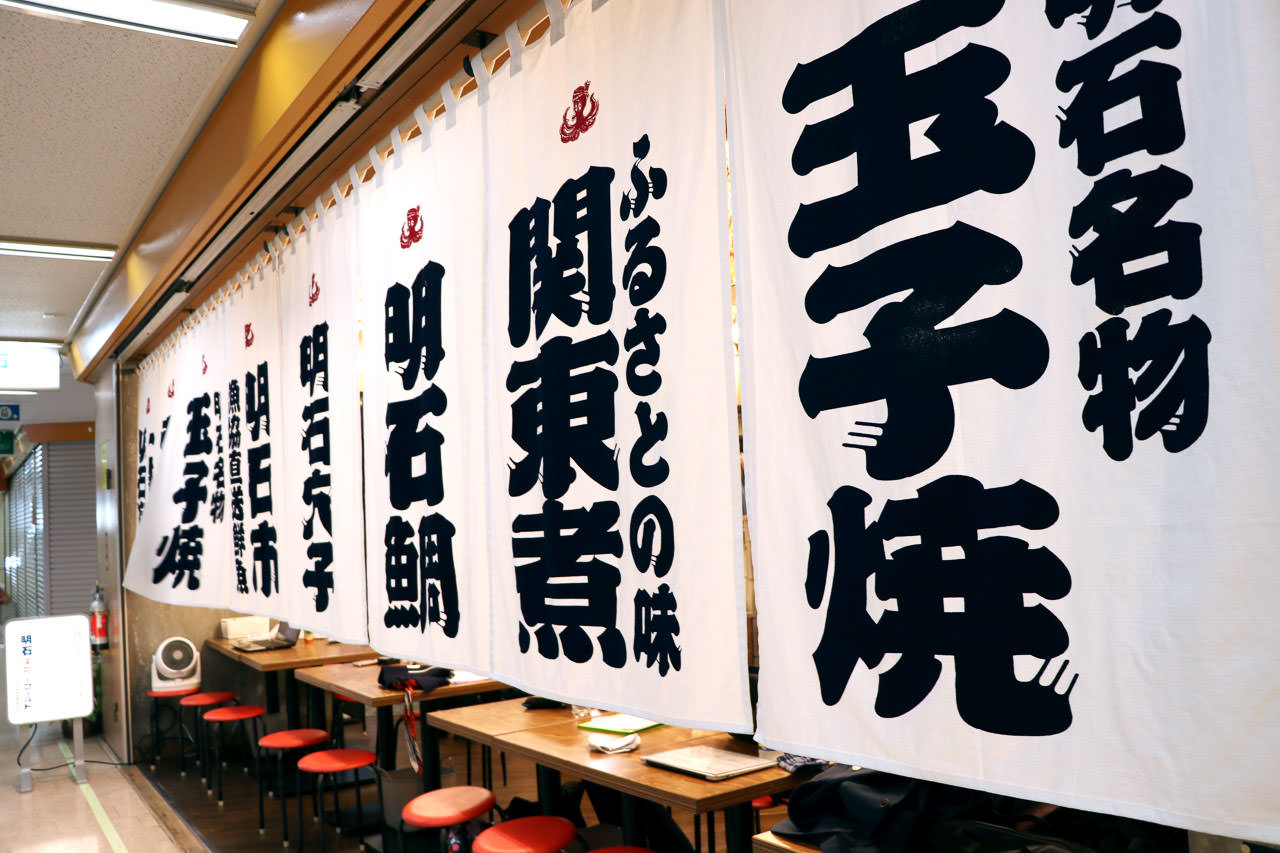 明石名物
玉子焼
ふるさとの味
関東煮
明石鯛
明石六子
明日市
魚効直送鮮魚
明石名物
玉子焼
明石